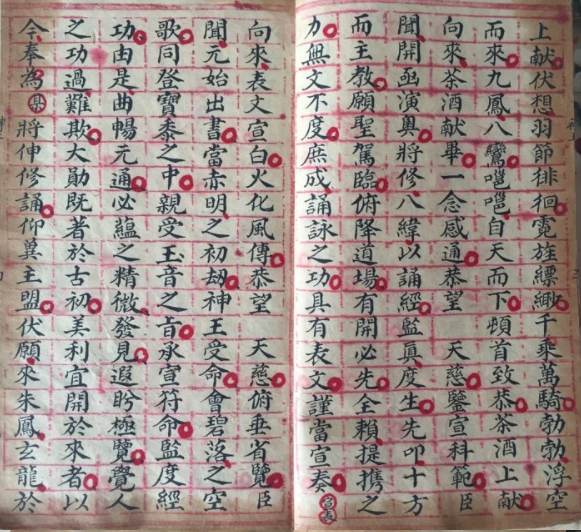 上献伏想羽節徘徊霓旌縹緲千乘萬騎勃勃浮空
而來九鳳八鸞嗈嗈自天而下頓首致恭茶酒上献
向來茶酒献畢一念感通恭望 天慈鑒宣科範臣
聞開函演奧將修八緯以誦經監眞度生先叩十方
而主教願聖駕臨俯降道場有開必先全賴提携之
力無文不度庶成誦詠之功具有表文謹當宣奏宣表
向來表文宣白火化風傳恭望 天慈俯垂省覽臣
聞元始出書當赤明之初劫神王受命會碧落之空
歌同登寶黍之中親受玉音之旨承宣符命監度經
功由是曲暢元通必蘊之精微發見遐眄極覽覺人
之功過難欺大勛既著於古初美利宜開於來者以
今奉為某將伸修誦仰奠主盟伏願來朱鳳玄龍於